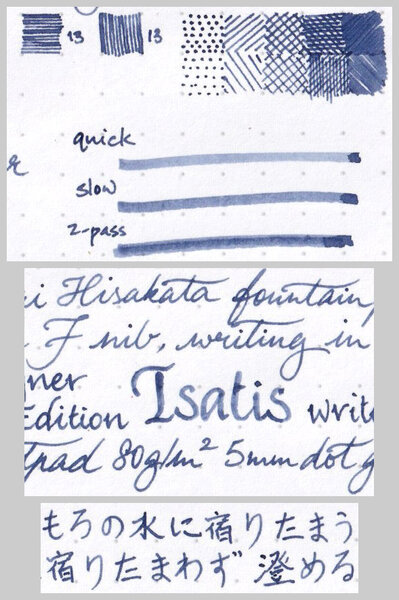 13 13
quick
slow
2-pass
i Hisakata fountain
F nib, writing in
ner
Edition Isatis write
tpad 80g/m² 5mm dot g
もろの水に宿りたまう
宿りたまわず 澄める